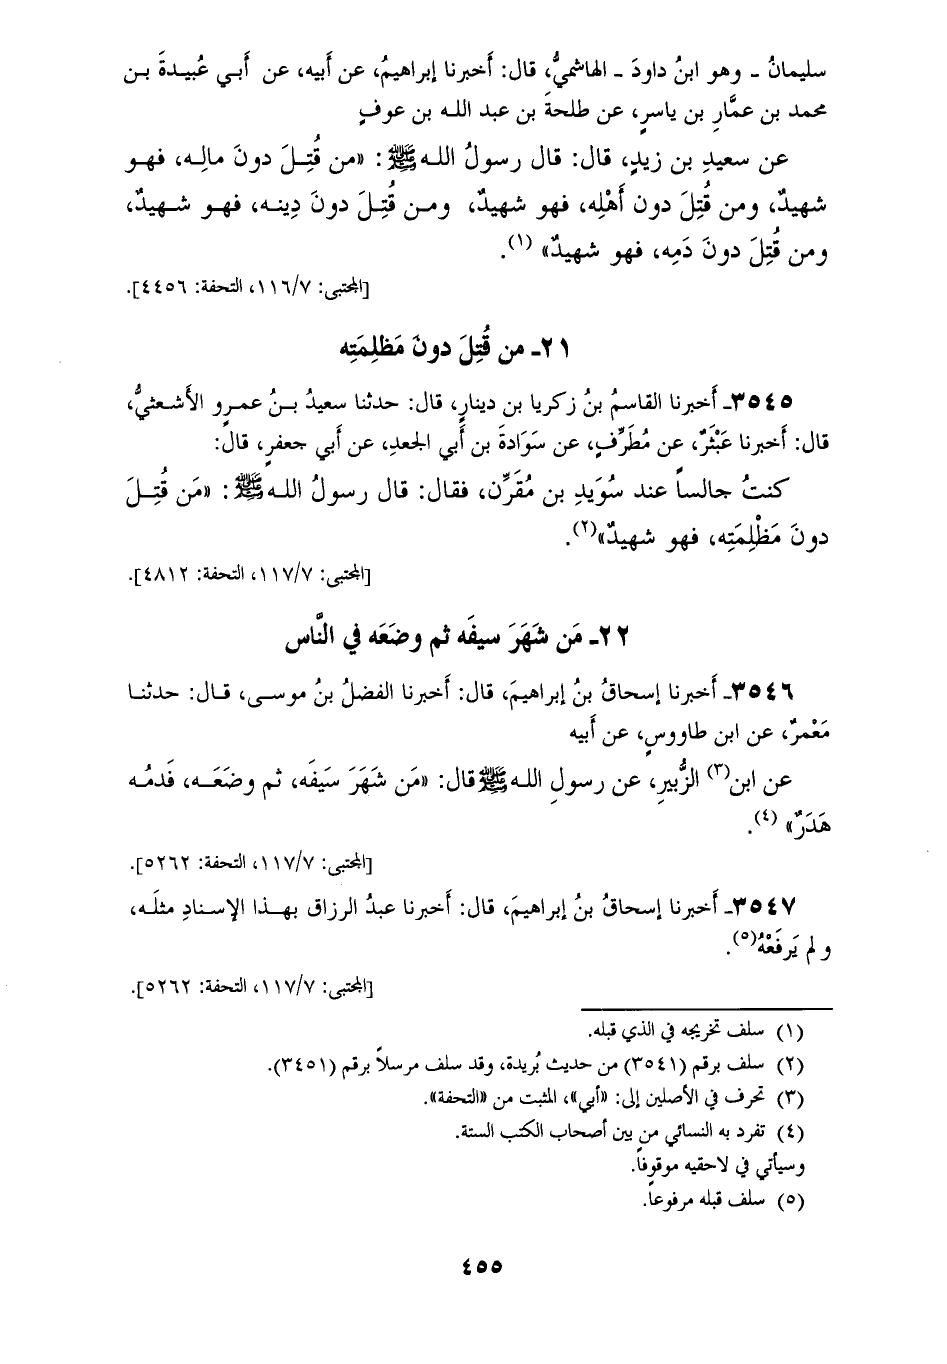 سليمانُ ـ وهو ابنُ داودَ ـ الهاشميُّ، قال: أخبرنا إبراهيمُ، عن أَبيه، عن أَبي عُبيدةَ بن
محمد بن عمَّارِ بن ياسرٍ، عن طلحةَ بن عبد الله بن عوفٍ
عن سعيدِ بن زيدٍ، قال: قال رسولُ اللهﷺ: «من قُتِلَ دونَ مالِه، فهو
شهيدٌ، ومن قُتِلَ دون أَهْلِه، فهو شهيدٌ، ومن قُتِلَ دونَ دِينه، فهو شهيدٌ،
ومن قُتِلَ دونَ دَمِه، فهو شهيدٌ» (١).
[المجتبى: ١١٦/٧، التحفة: ٤٤٥٦].
٢١ـ من قُتِلَ دونَ مَظلِمَتِه
٣٥٤٥ـ أَخبرنا القاسمُ بنُ زكريا بن دينارٍ، قال: حدثنا سعيدُ بنُ عمرو الأَشعثيُّ،
قال: أَخبرنا عَبْثَرٌ، عن مُطَرِّفٍ، عن سَوَادةَ بن أَبي الجعدِ، عن أَبي جعفرٍ، قال:
كنتُ جالساً عند سُوَيدِ بن مُقَرِّن، فقال: قال رسولُ اللهﷺ: «مَن قُتِلَ
دونَ مَظْلِمَتِه، فهو شهيدٌ»(٢).
[المجتبى: ١١٧/٧، التحفة: ٤٨١٢].
٢٢ـ مَن شَهَرَ سيفَه ثم وضَعَه في النَّاس
٣٥٤٦ـ أَخبرنا إسحاقُ بنُ إبراهيمَ، قال: أَخبرنا الفضلُ بنُ موسى، قال: حدثنا
مَعْمرٌ، عن ابن طاووسٍ، عن أَبيه
عن ابن(٣) الزُّبيرِ، عن رسولِ اللهﷺ قال: «مَن شَهَرَ سَيفَه، ثم وضَعَه، فَدمُه
هَدَرٌ» (٤).
[المجتبى: ١١٧/٧، التحفة: ٥٢٦٢].
٣٥٤٧ـ أَخبرنا إسحاقُ بنُ إبراهيمَ، قال: أَخبرنا عبدُ الرزاق بهذا الإسنادِ مثلَه،
ولم يَرفَعْهُ(٥).
[المجتبى: ١١٧/٧، التحفة: ٥٢٦٢].
(١) سلف تخريجه في الذي قبله.
(٢) سلف برقم (٣٥٤١) من حديث بُريدة، وقد سلف مرسلاً برقم (٣٤٥١).
(٣) تحرف في الأصلين إلى: «أبي»، المثبت من «التحفة».
(٤) تفرد به النسائي من بين أصحاب الكتب الستة.
وسيأتي في لاحقيه موقوفاً.
(٥) سلف قبله مرفوعاً.
٤٥٥